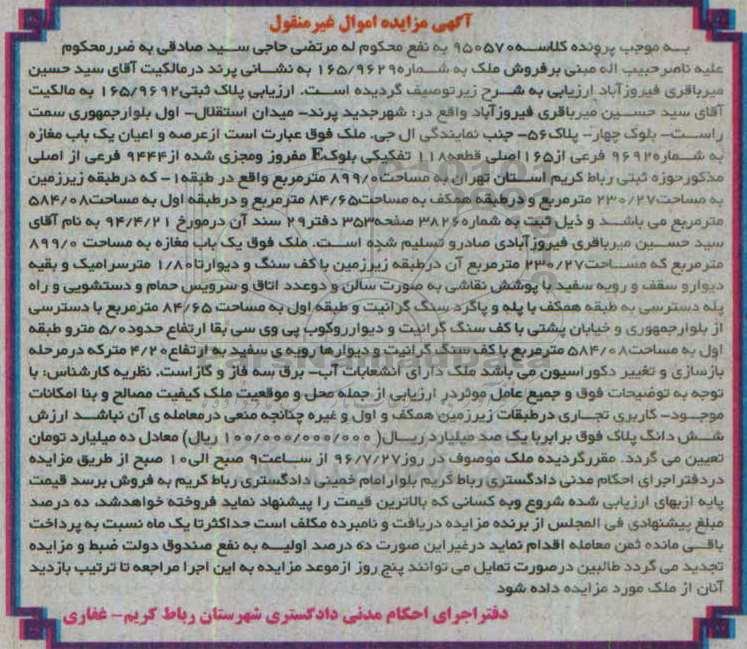 آگهی مزایده اموال غیرمنقول
به موجب پرونده کلاسه ۹۵۰۵۷۰ به نفع محکوم له مرتضی حاجی سید صادقی به ضرر محکوم
علیه ناصر حبیب اله مبنی بر فروش ملک به شماره ۱۶۵/۹۶۲۹ به نشانی پرند در مالکیت آقای سید حسین
میرباقری فیروزآباد ارزیابی به شرح زیر توصیف گردیده است. ارزیابی پلاک ثبتی ۱۶۵/۹۶۹۲ به مالکیت
آقای سید حسین میرباقری فیروزآباد واقع در: شهرجدید پرند- میدان استقلال- اول بلوار جمهوری سمت
راست- بلوک چهار- پلاک ۵۶- جنب نمایندگی ال جی. ملک فوق عبارت است از عرصه و اعیان یک باب مغازه
به شماره ۹۶۹۲ فرعی از ۱۶۵ اصلی قطعه ۱۱۸ تفکیکی بلوک E مفروز ومجزی شده از ۹۴۴۴ فرعی از اصلی
مذکور حوزه ثبتی رباط کریم استان تهران به مساحت ۸۹۹/۰ مترمربع واقع در طبقه ۱- که در طبقه زیرزمین
به مساحت ۲۳۰/۲۷ مترمربع و در طبقه همکف به مساحت ۸۴/۶۵ مترمربع و در طبقه اول به مساحت ۵۸۴/۰۸
مترمربع می باشد و ذیل ثبت به شماره ۳۸۲۶ صفحه ۳۵۳ دفتر ۲۹ سند آن در مورخ ۹۴/۴/۲۱ به نام آقای
سید حسین میرباقری فیروزآبادی صادر و تسلیم شده است. ملک فوق یک باب مغازه به مساحت ۸۹۹/۰
مترمربع که مساحت ۲۳۰/۲۷ مترمربع آن در طبقه زیرزمین با کف سنگ و دیوار تا ۱/۸۰ متر سرامیک و بقیه
دیوار و سقف و رویه سفید با پوشش نقاشی به صورت سالن و دو عدد اتاق و سرویس حمام و دستشویی و راه
پله دسترسی به طبقه همکف با پله و پاگرد سنگ گرانیت و طبقه اول به مساحت ۸۴/۶۵ مترمربع با دسترسی
از بلوار جمهوری و خیابان پشتی با کف سنگ گرانیت و دیوار روکوب پی وی سی بقا ارتفاع حدود ۵/۰ متر و طبقه
اول به مساحت ۵۸۴/۰۸ مترمربع با کف سنگ گرانیت و دیوارها رویه ی سفید به ارتفاع ۴/۲۰ متر که در مرحله
بازسازی و تغییر دکوراسیون می باشد ملک دارای انشعابات آب- برق سه فاز و گاز است. نظریه کارشناس: با
توجه به توضیحات فوق و جمیع عامل موثر در ارزیابی از جمله محل و موقعیت ملک کیفیت مصالح و بنا امکانات
موجود- کاربری تجاری در طبقات زیرزمین همکف و اول و غیره چنانچه منعی در معامله ی آن نباشد ارزش
شش دانگ پلاک فوق برابر با یک صد میلیارد ریال( ۱۰۰/۰۰۰/۰۰۰/۰۰۰ ریال) معادل ده میلیارد تومان
تعیین می گردد. مقرر گردیده ملک موصوف در روز ۹۶/۷/۲۷ از ساعت ۹ صبح الی ۱۰ صبح از طریق مزایده
در دفتر اجرای احکام مدنی دادگستری رباط کریم بلوار امام خمینی دادگستری رباط کریم به فروش برسد قیمت
پایه از بهای ارزیابی شده شروع وبه کسانی که بالاترین قیمت را پیشنهاد نماید فروخته خواهدشد، ده درصد
مبلغ پیشنهادی فی المجلس از برنده مزایده دریافت و نامبرده مکلف است حداکثر تا یک ماه نسبت به پرداخت
باقی مانده ثمن معامله اقدام نماید در غیر این صورت ده درصد اولیه به نفع صندوق دولت ضبط و مزایده
تجدید می گردد طالبین در صورت تمایل می توانند پنج روز از موعد مزایده به این اجرا مراجعه تا ترتیب بازدید
آنان از ملک مورد مزایده داده شود
دفتر اجرای احکام مدنی دادگستری شهرستان رباط کریم- غفاری